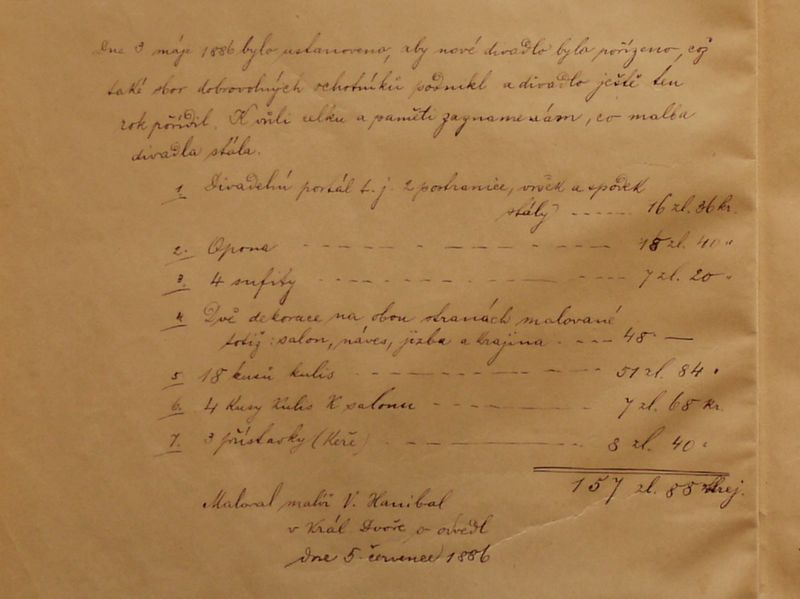 Dne 3 máje 1886 bylo ustanoveno, aby nové divadlo bylo pořízeno, což
také sbor dobrovolných ochotníků podnikl a divadlo ještě ten
rok pořídil. K vůli celku a paměti zaznamenám, co malba
divadla stála.
1. Divadelní portál t. j. 2 postranice, vršek a spodek
stály ---- 16 zl. 36 kr.
2. Opona ---- 18 zl. 40 "
3. 4 sufity ---- 7 zl. 20 "
4. Dvě dekorace na obou stranách malované
totiž: salon, náves, jizba a krajina ---- 48 —
5. 18 kusů kulis ---- 51 zl. 84 "
6. 4 kusy kulis k salonu ---- 7 zl. 68 kr.
7. 3 přístavky (keře) ---- 8 zl. 40 "
157 zl. 88 krej.
Maloval malíř V. Hanibal
v Král Dvoře, o odvedl
dne 5. července 1886